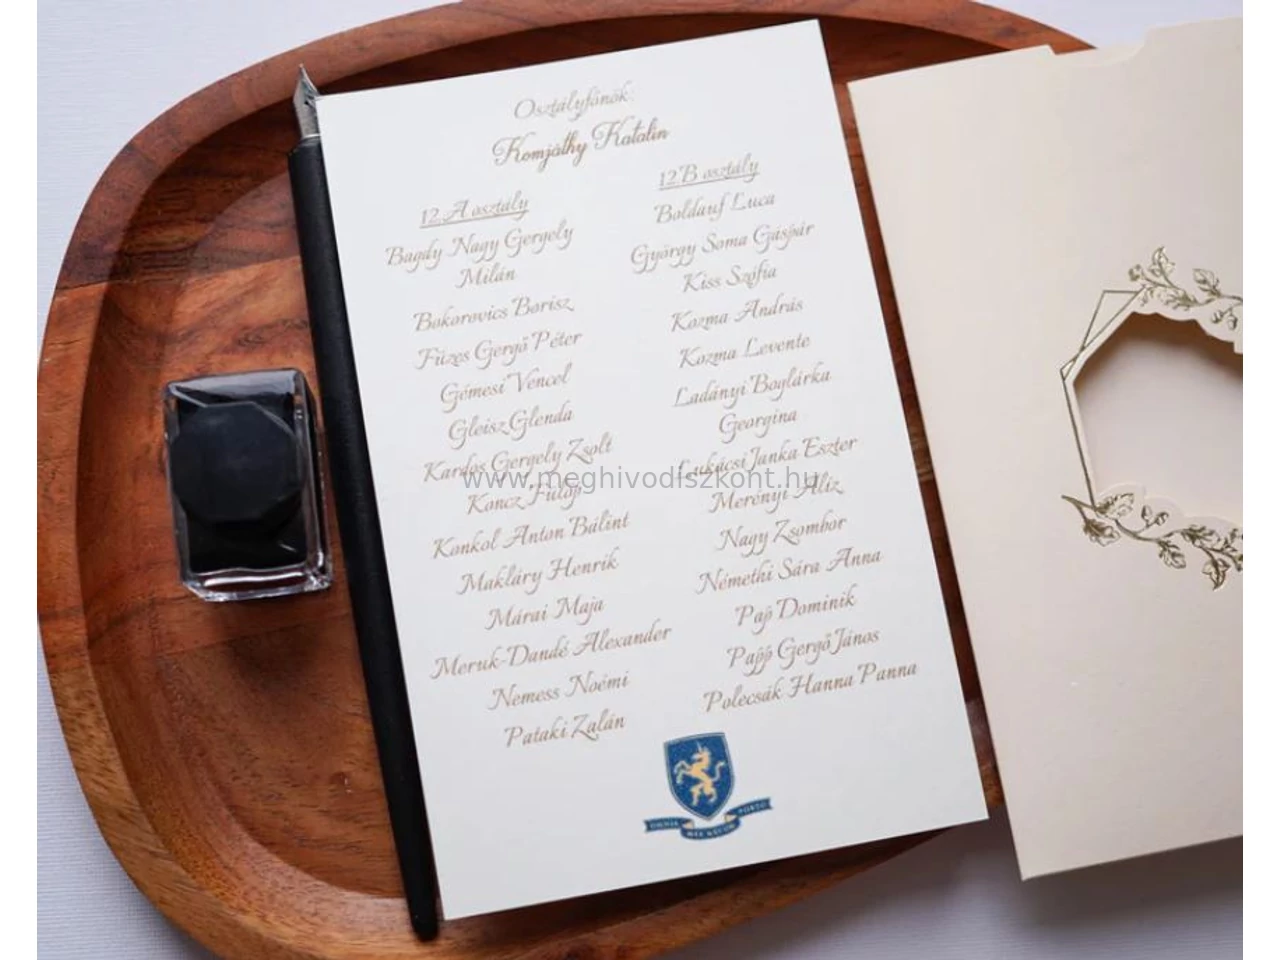 Osztályfőnök:
Komjáthy Katalin
12.A osztály
Bagdy Nagy Gergely
Milán
Bokorovics Borisz
Füzes Gergő Péter
Gémesi Vencel
Gleisz Glenda
Kardos Gergely Zsolt
Koncz Fülöp
Konkol Anton Bálint
Makláry Henrik
Márai Maja
Meruk-Dandé Alexander
Nemess Noémi
Pataki Zalán
12.B osztály
Boldauf Luca
György Soma Gáspár
Kiss Szófia
Kozma András
Kozma Levente
Ladányi Boglárka
Georgina
Lukácsi Janka Eszter
Merényi Alíz
Nagy Zsombor
Némethi Sára Anna
Pap Dominik
Papp Gergő János
Polecsák Hanna Panna
OMNIA MEA MECUM PORTO
www.meghivodiszkont.hu